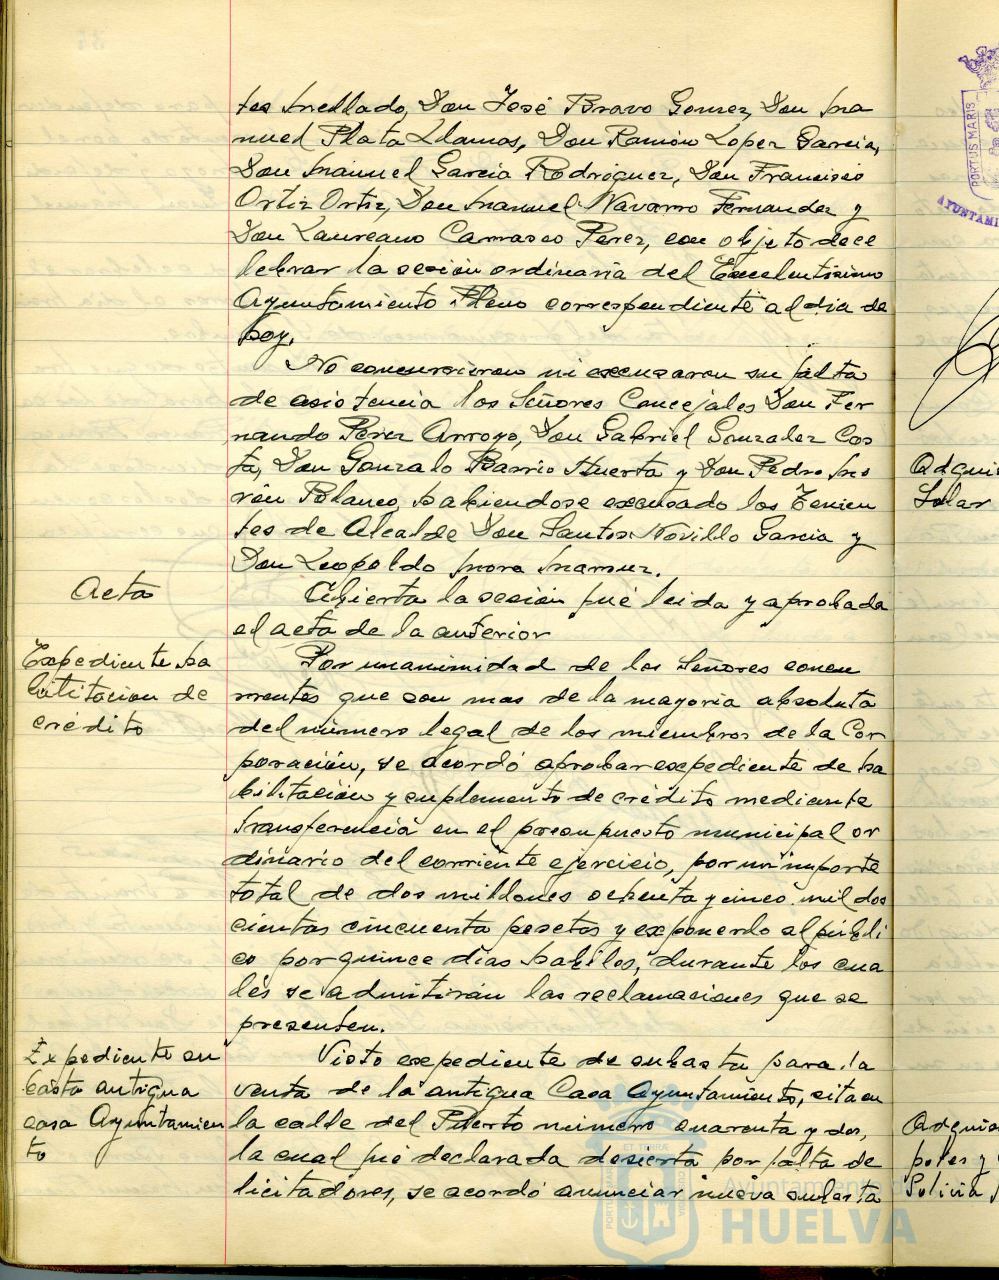 tes Mellado, Don José Bravo Gomez, Don Ma
nuel Plata Llamas, Don Ramón Lopez Garcia,
Don Manuel Garcia Rodriguez, Don Francisco
Ortiz Ortiz, Don Manuel Navarro Fernandez y
Don Laureano Carrasco Perez, con objeto de ce
lebrar la sesión ordinaria del Excelentisimo
Ayuntamiento Pleno correspondiente al dia de
hoy.
No concurrieron ni excusaron su falta
de asistencia los Señores Concejales Don Fer
nando Perez Arroyo, Don Gabriel Gonzalez Cos
ta, Don Gonzalo Barrio Huerta y Don Pedro Mo
rón Blanco, habiendose excusado los Tenien
tes de Alcalde Don Santos Novillo Garcia y
Don Leopoldo Mora
Acta
Abierta la sesión fué leida y aprobada
el acta de la anterior
Expediente ha
bilitacion de
crédito
Por unanimidad de los Señores concu
rrentes que son mas de la mayoria absoluta
del número legal de los miembros de la Cor
poración, se acordó aprobar expediente de ha
bilitación y suplemento de crédito mediante
transferencia en el presupuesto municipal or
dinario del corriente ejercicio, por un importe
total de dos millones ochenta y cinco mil dos
cientas cincuenta pesetas y exponerlo al públi
co por quince dias habiles, durante los cua
les se admitirán las reclamaciones que se
presenten.
Expediente su
basta antigua
casa Ayuntamien
to
Visto expediente de subasta para la
venta de la antigua Casa Ayuntamiento, sita en
la calle del Puerto numero cuarenta y dos,
la cual fué declarada desierta por falta de
licitadores, se acordó anunciar nueva subasta
PORTUS MARIS
Solar
Ayuntamiento d
HUELVA